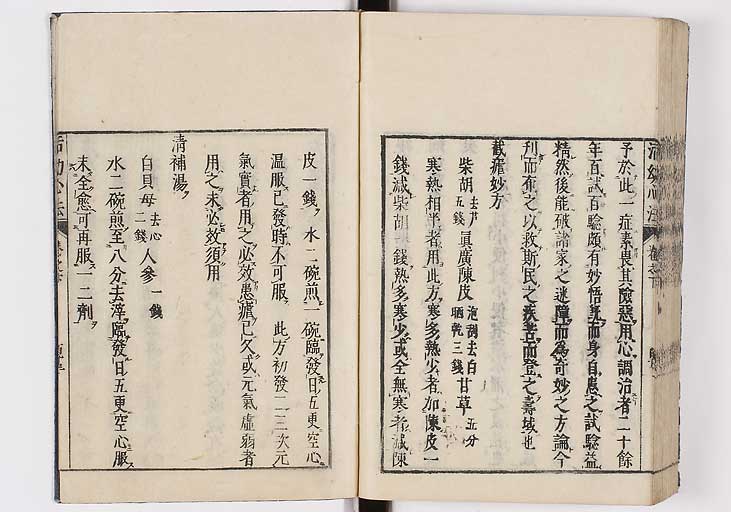 予於此一症素畏其險惡用心調治者二十餘
年百試百驗頗有妙悟而身自患之試驗益
精然後能破諸家之迷障而爲奇妙之方論今
刊而布之以救斯民之疾苦而登之壽域也
截瘧妙方
柴胡去芦五錢眞廣陳皮泡刮去白晒乾三錢甘草五分
寒熱相半者用此方寒多熱少者加陳皮一
錢減柴胡一錢熱多寒少或全無寒者減陳
皮一錢水二碗煎一碗臨發日五更空心
温服已發時不可服 此方初發二三次元
氣實者用之必效患瘧已久或元氣虛弱者
用之未必效須用
清補湯
白貝母去心二錢人參一錢
水二碗煎至八分去滓臨發日五更空心服
未全愈可再服一二劑
活幼心法
卷之下